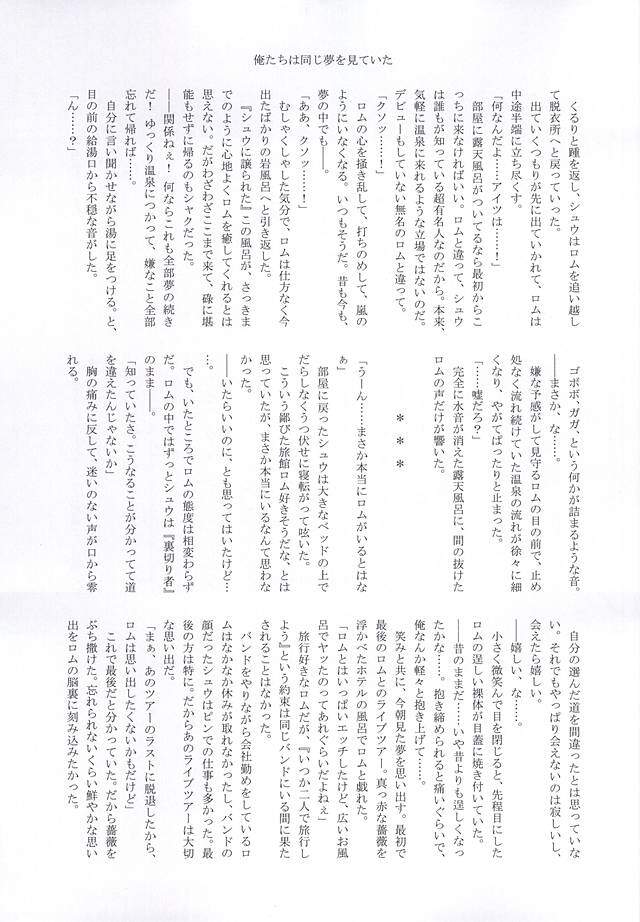 俺たちは同じ夢を見ていた
くるりと踵を返し、シュウはロムを追い越し
て脱衣所へと戻っていった。
出ていくつもりが先に出ていかれて、ロムは
中途半端に立ち尽くす。
「何なんだよ……アイツは……！」
部屋に露天風呂がついてるなら最初からこ
っちに来なければいい。ロムと違って、シュウ
は誰もが知っている超有名人なのだから。本来、
気軽に温泉に来れるような立場ではないのだ。
デビューもしていない無名のロムと違って。
「クソッ……！」
ロムの心を掻き乱して、打ちのめして、嵐の
ようにいなくなる。いつもそうだ。昔も今も、
夢の中でも――。
「ああ、クソッ……！」
むしゃくしゃした気分で、ロムは仕方なく今
出たばかりの岩風呂へと引き返した。
『シュウに譲られた』この風呂が、さっきま
でのように心地よくロムを癒してくれるとは
思えない。だがわざわざここまで来て、碌に堪
能もせずに帰るのもシャクだった。
――関係ねぇ！　何ならこれも全部夢の続き
だ！　ゆっくり温泉につかって、嫌なこと全部
忘れて帰れば……。
自分に言い聞かせながら湯に足をつける。と、
目の前の給湯口から不穏な音がした。
「ん……？」
ゴボボ、ガガ、という何かが詰まるような音。
――まさか、な……。
嫌な予感がして見守るロムの目の前で、止め
処なく流れ続けていた温泉の流れが徐々に細
くなり、やがてぱったりと止まった。
「……嘘だろ？」
完全に水音が消えた露天風呂に、間の抜けた
ロムの声だけが響いた。
＊　＊　＊
「うーん……まさか本当にロムがいるとはな
ぁ」
部屋に戻ったシュウは大きなベッドの上で
だらしなくうつ伏せに寝転がって呟いた。
こういう鄙びた旅館ロム好きそうだな、とは
思っていたが、まさか本当にいるなんて思わな
かった。
――いたらいいのに、とも思ってはいたけど…
…。
でも、いたところでロムの態度は相変わらず
だ。ロムの中ではずっとシュウは『裏切り者』
のまま――。
「知っていたさ。こうなることが分かってて道
を違えたんじゃないか」
胸の痛みに反して、迷いのない声が口から零
れる。
自分の選んだ道を間違ったとは思っていな
い。それでもやっぱり会えないのは寂しいし、
会えたら嬉しい。
――嬉しい、な……。
小さく微笑んで目を閉じると、先程目にした
ロムの逞しい裸体が目蓋に焼き付いていた。
――昔のままだ……いや昔よりも逞しくなっ
たかな……。抱き締められると痛いぐらいで、
俺なんか軽々と抱き上げて……。
笑みと共に、今朝見た夢を思い出す。最初で
最後のロムとのライブツアー。真っ赤な薔薇を
浮かべたホテルの風呂でロムと戯れた。
「ロムとはいっぱいエッチしたけど、広いお風
呂でヤッたのってあれぐらいだよねぇ」
旅行好きなロムだが、『いつか二人で旅行し
よう』という約束は同じバンドにいる間に果た
されることはなかった。
バンドをやりながら会社勤めをしているロ
ムはなかなか休みが取れなかったし、バンドの
顔だったシュウはピンでの仕事も多かった。最
後の方は特に。だからあのライブツアーは大切
な思い出だ。
「まぁ、あのツアーのラストに脱退したから、
ロムは思い出したくないかもだけど」
これで最後だと分かっていた。だから薔薇を
ぶち撒けた。忘れられないくらい鮮やかな思い
出をロムの脳裏に刻み込みたかった。